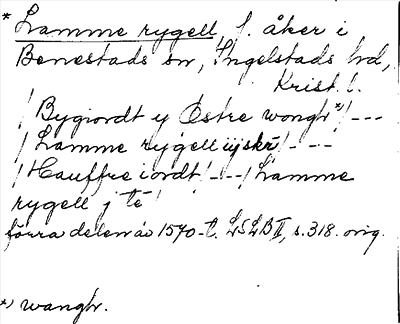 * Lamme rygell, f. åker i
Benestads sn, Ingelstads hd,
Krist. l.
/ Bygiordt y Østre wongh*) / ---
/ Lamme rygell ijskr / ----
/ Hauffre iordt / --- / Lamme
rygell j tē /
förra delen av 1570-t. LSLB II, s. 318. orig.
*) wangh.